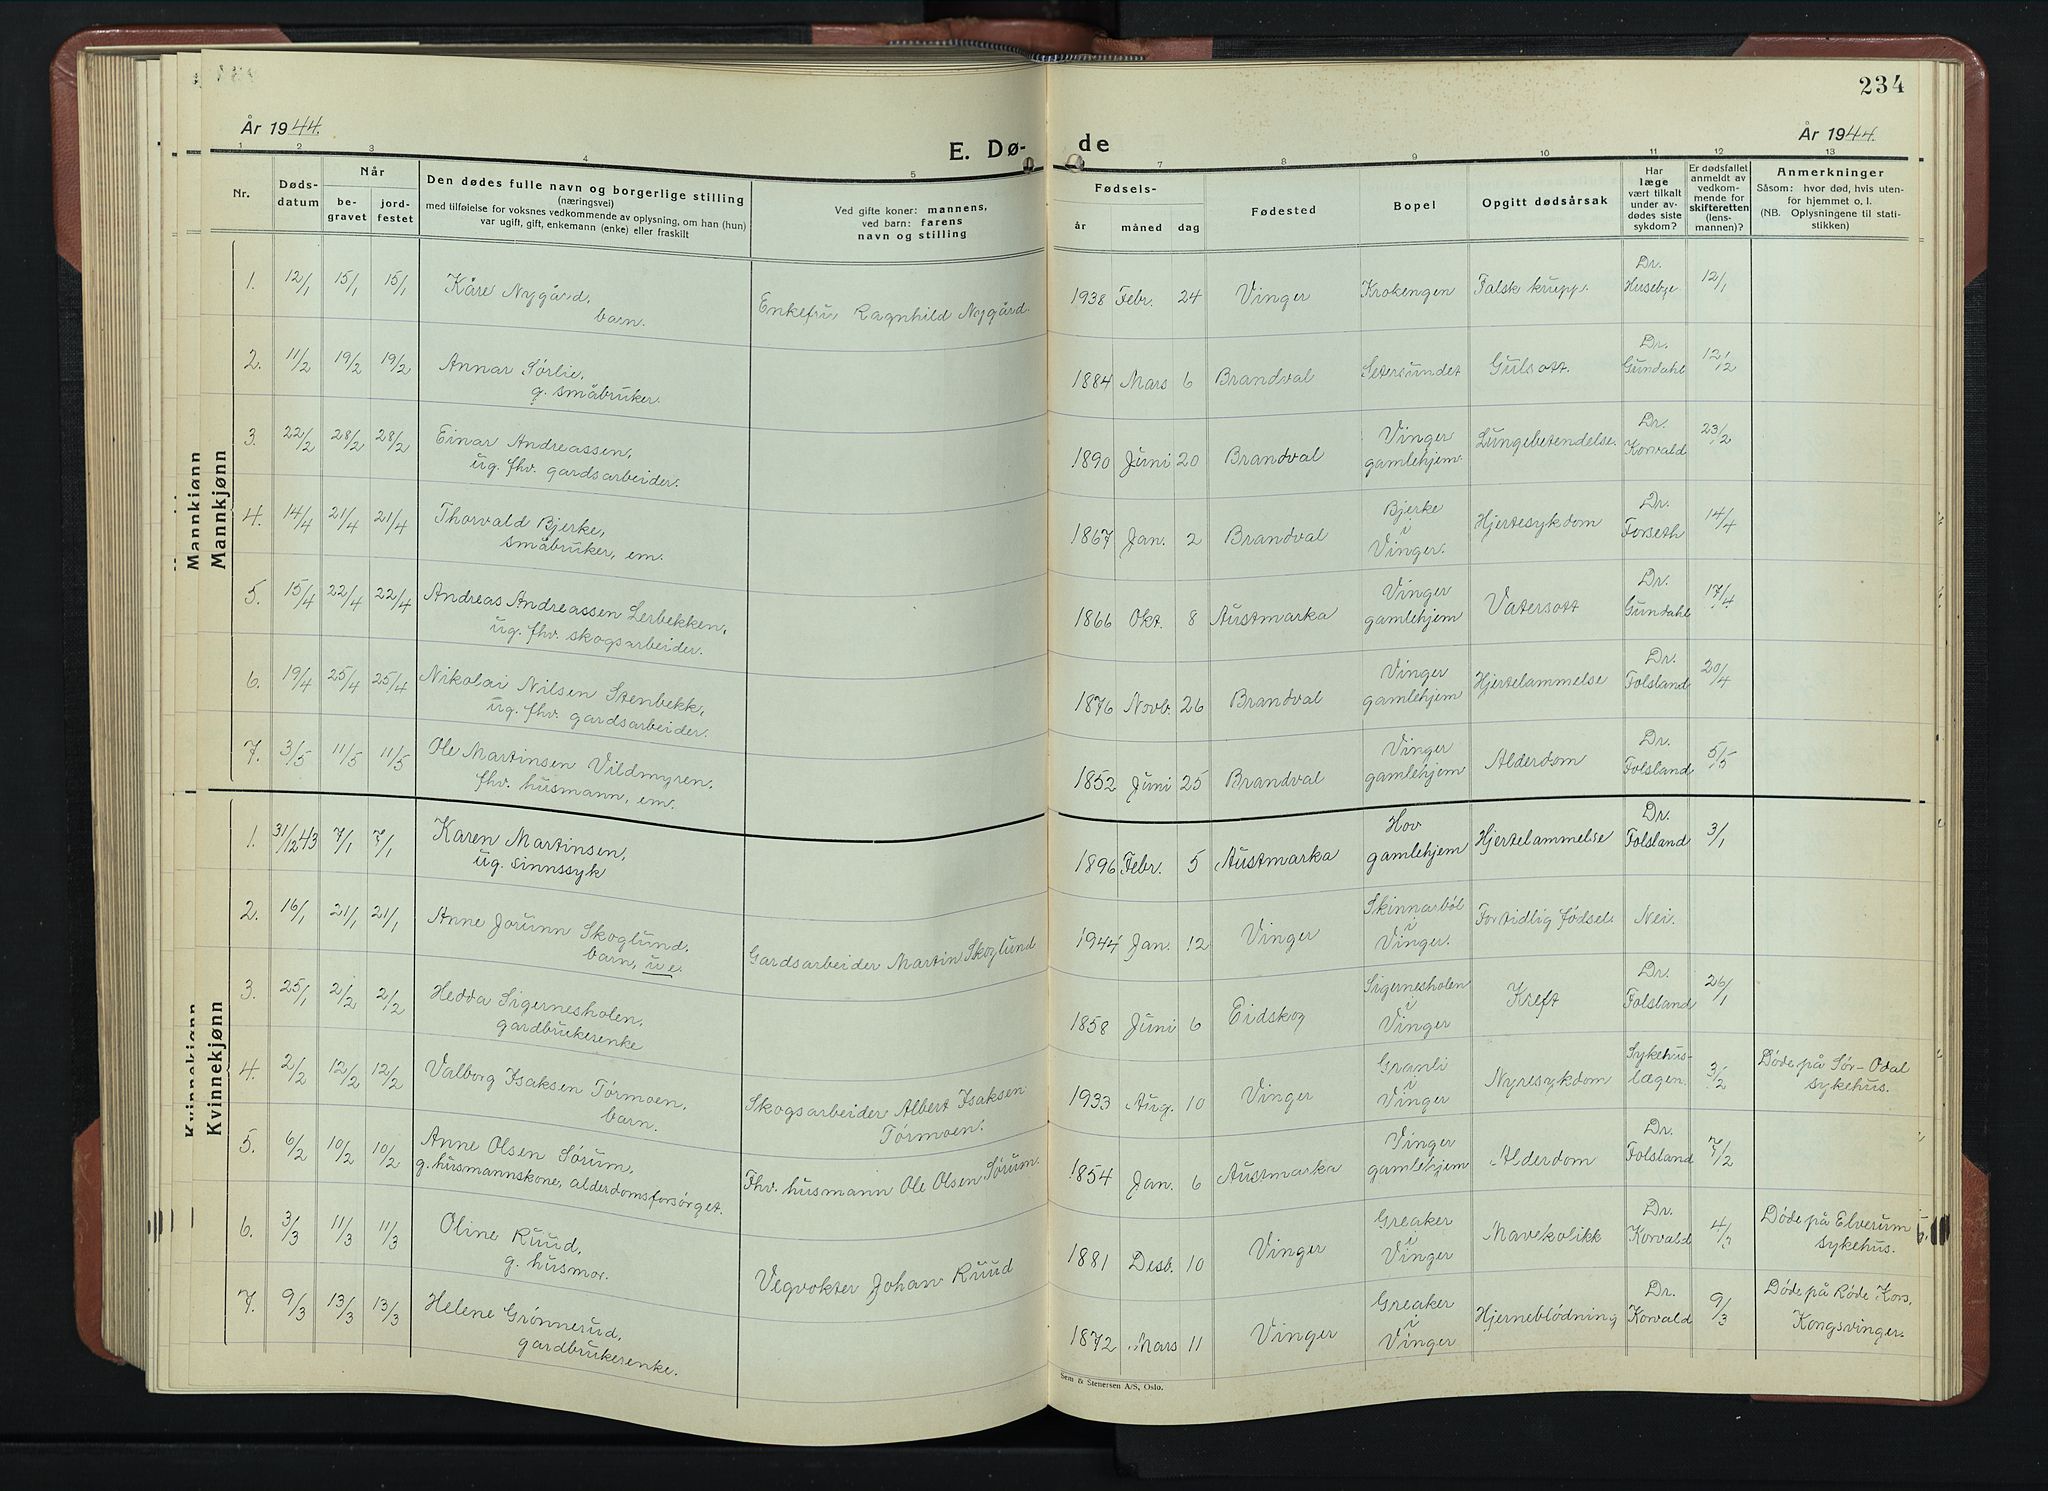 234
År 1944.
E. Dø-
de
År 1944.
1 2 3 4 5 7 8 9 10 11 12 13
Nr.
Døds-
datum
Når
be-
gravet
jord-
festet
Den dødes fulle navn og borgerlige stilling
(næringsvei)
med tilføielse for voksnes vedkommende av oplysning, om han (hun)
var ugift, gift, enkemann (enke) eller fraskilt
Ved gifte koner: mannens,
ved barn: farens
navn og stilling
Fødsels-
år måned dag
Fødested
Bopel
Opgitt dødsårsak
Har
læge
vært tilkalt
under av-
dødes siste
sykdom?
Er dødsfallet
anmeldt av
vedkom-
mende for
skifteretten
(lens-
mannen)?
Anmerkninger
Såsom: hvor død, hvis uten-
for hjemmet o. l.
(NB. Oplysningene til stati-
stikken)
Mannkjønn
Mannkjønn
1. 12/1 15/1 15/1 Kåre Nygård,
barn.
Enkefru Ragnhild Nygård.
1938 Febr. 24 Vinger Krokengen Falsk krupp. Dr.
Husebye 12/1
2. 11/2 19/2 19/2 Annar Sørlie,
g. småbruker.
1884 Mars 6 Brandval Setersundet Gulsott. Dr.
Gundahl 12/2
3. 22/2 28/2 28/2 Einar Andreassen,
ug. fhv. gardsarbeider.
1890 Juni 20 Brandval Vinger
gamlehjem. Lungebetendelse. Dr.
Korvald 23/2
4. 14/4 21/4 21/4 Thorvald Bjerke,
småbruker, em.
1867 Jan. 2 Brandval Bjerke
i
Vinger. Hjertesykdom Dr.
Forseth 14/4
5. 15/4 22/4 22/4 Andreas Andreassen Lerbekken,
ug. fhv. skogsarbeider.
1866 Okt. 8 Austmarka Vinger
gamlehjem Vatersott Dr.
Gundahl 17/4
6. 19/4 25/4 25/4 Nikolai Nilsen Stenbekk,
ug. fhv. gardsarbeider.
1876 Novb. 26 Brandval Vinger
gamlehjem Hjertelammelse Dr.
Folsland 20/4
7. 3/5 11/5 11/5 Ole Martinsen Vildmyren,
fhv. husmann, em.
1852 Juni 25 Brandval Vinger
gamlehjem Alderdom Dr.
Folsland 5/5
Kvinnekjønn
Kvinnekjønn
1. 31/12 43 7/1 7/1 Karen Martinsen,
ug. sinnssyk
1896 Febr. 5 Austmarka Hov
gamlehjem Hjertelammelse Dr.
Folsland 3/1
2. 16/1 21/1 21/1 Anne Jorunn Skoglund,
barn, u e.
Gardsarbeider Martin Skoglund
1944 Jan. 12 Vinger Skinnarbøl
i
Vinger. For tidlig fødsel. Nei.
3. 25/1 2/2 2/2 Hedda Sigernesholen,
gardbrukerenke
1858 Juni 6 Eidskog Sigernesholen
i
Vinger Kreft Dr.
Folsland 26/1
4. 2/2 12/2 12/2 Valborg Isaksen Tørmoen,
barn.
Skogsarbeider Albert Isaksen
Tørmoen.
1933 Aug. 10 Vinger Granli
i
Vinger Nyresykdom Sykehus-
lægen. 3/2 Døde på Sør-Odal
sykehus.
5. 6/2 10/2 10/2 Anne Olsen Sørum,
g. husmannskone, alderdomsforsørget.
Fhv. husmann Ole Olsen Sørum.
1854 Jan. 6 Austmarka Vinger
gamlehjem Alderdom Dr.
Folsland 7/2
6. 3/3 11/3 11/3 Oline Ruud,
g. husmor.
Vegvokter Johan Ruud
1881 Desb. 10 Vinger Greaker
i
Vinger Mavekolikk Dr.
Korvald 4/3 Døde på Elverum
sykehus.
7. 9/3 13/3 13/3 Helene Grønnerud,
gardbrukerenke.
1872 Mars 11 Vinger Greaker
i
Vinger Hjerneblødning Dr.
Korvald 9/3 Døde på Røde Kors,
Kongsvinger.
Sem & Stenersen A/S, Oslo.